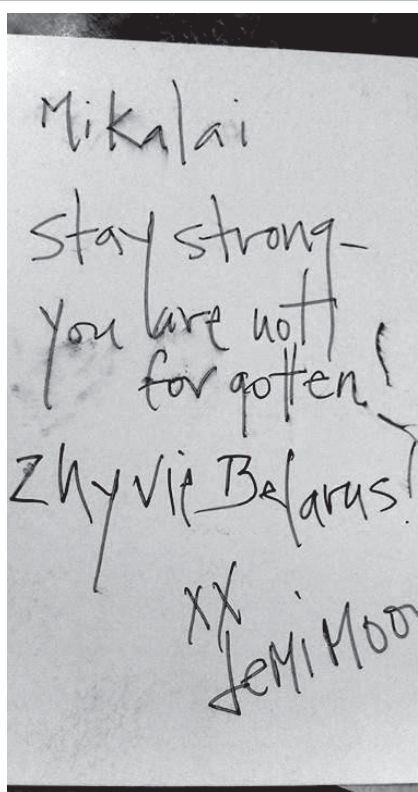 Mikalai
stay strong–
you are not
forgotten!
Zhyvie Belarus!
XX